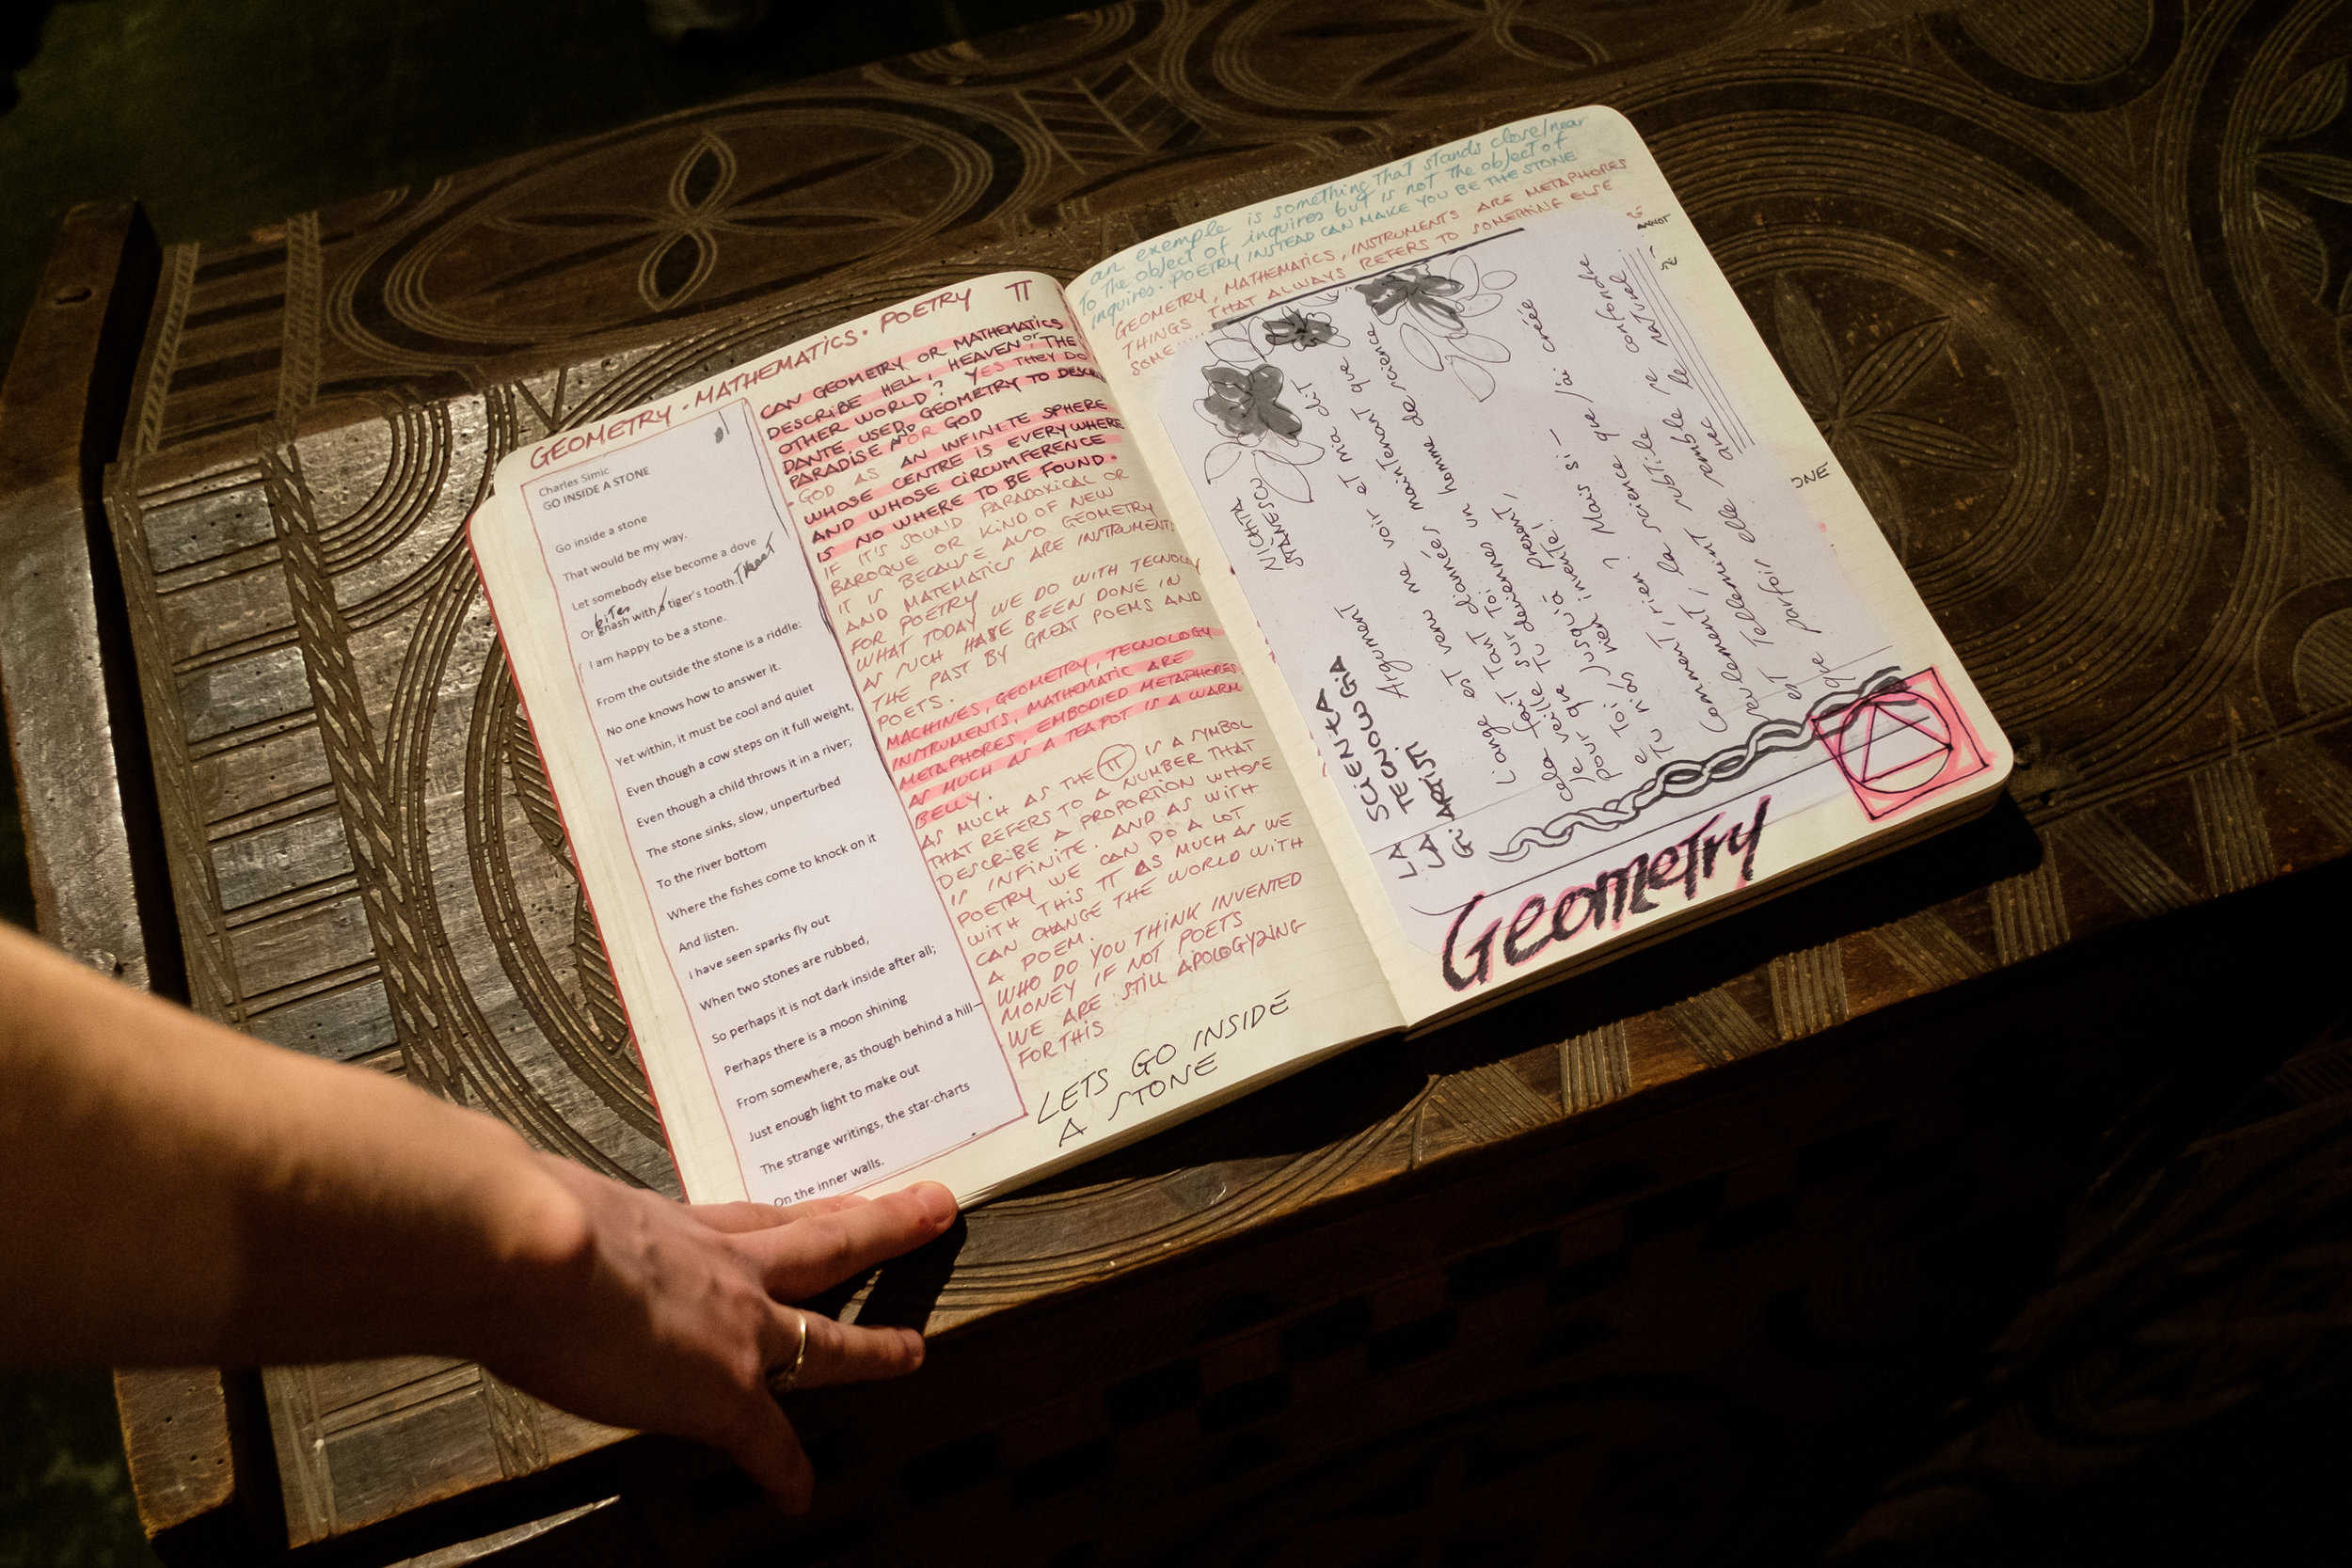 GEOMETRY · MATHEMATICS · POETRY π
Charles Simic
GO INSIDE A STONE
Go inside a stone
That would be my way.
Let somebody else become a dove
Or gnash with a tiger's tooth.
bites
I am happy to be a stone.
From the outside the stone is a riddle:
No one knows how to answer it.
Yet within, it must be cool and quiet
Even though a cow steps on it full weight,
Even though a child throws it in a river;
The stone sinks, slow, unperturbed
To the river bottom
Where the fishes come to knock on it
And listen.
I have seen sparks fly out
When two stones are rubbed,
So perhaps it is not dark inside after all;
Perhaps there is a moon shining
From somewhere, as though behind a hill—
Just enough light to make out
The strange writings, the star-charts
On the inner walls.
CAN GEOMETRY OR MATHEMATICS
DESCRIBE HELL, HEAVEN or THE
OTHER WORLD? YES THEY DO
DANTE USED GEOMETRY TO DESCRIBE
PARADISE AND OR GOD
GOD AS AN INFINITE SPHERE
WHOSE CENTRE IS EVERYWHERE
AND WHOSE CIRCUMFERENCE
IS NO WHERE TO BE FOUND.
IF IT'S SOUND PARADOXICAL OR
BAROQUE OR KIND OF NEW
IT IS BECAUSE ALSO GEOMETRY
AND MATEMATICS ARE INSTRUMENTS
FOR POETRY
WHAT TODAY WE DO WITH TECNOLOGY
AS SUCH HAVE BEEN DONE IN
THE PAST BY GREAT POEMS AND
POETS.
MACHINES, GEOMETRY, TECNOLOGY
INSTRUMENTS, MATHEMATIC ARE
METAPHORES, EMBODIED METAPHORES.
AS MUCH AS A TEAPOT IS A WARM
BELLY.
AS MUCH AS THE π IS A SYMBOL
THAT REFERS TO A NUMBER THAT
DESCRIBE A PROPORTION WHOSE
IS INFINITE. AND AS WITH
POETRY WE CAN DO A LOT
WITH THIS π AS MUCH AS WE
CAN CHANGE THE WORLD WITH
A POEM.
WHO DO YOU THINK INVENTED
MONEY IF NOT POETS
WE ARE STILL APOLOGYZING
FOR THIS
LETS GO INSIDE
A STONE
an exemple is something that stands close/near
To the object of inquires but is not the object of
inquires. POETRY INSTEAD CAN MAKE YOU BE THE STONE
GEOMETRY, MATHEMATICS, INSTRUMENTS ARE METAPHORES
THINGS THAT ALWAYS REFERS TO SOMETHING ELSE
SOME
NICHITA
STANESCU
LA SCIENZA
LA TECNOLOGIA
Gli ARTISTI
Argument
L'ange est venu me voir et m'a dit
cela fait Tant d'années maintenant que
je veille sur Toi.
pour que Tu deviennes un homme de science
e Toi jusqu'à présent,
Tu n'as rien inventé.
Comment, rien ? Mais si—
seulement, la science que j'ai créée
est Tellement subtile
que parfois elle semble se confondre
avec le naturel
ONE
Geometry